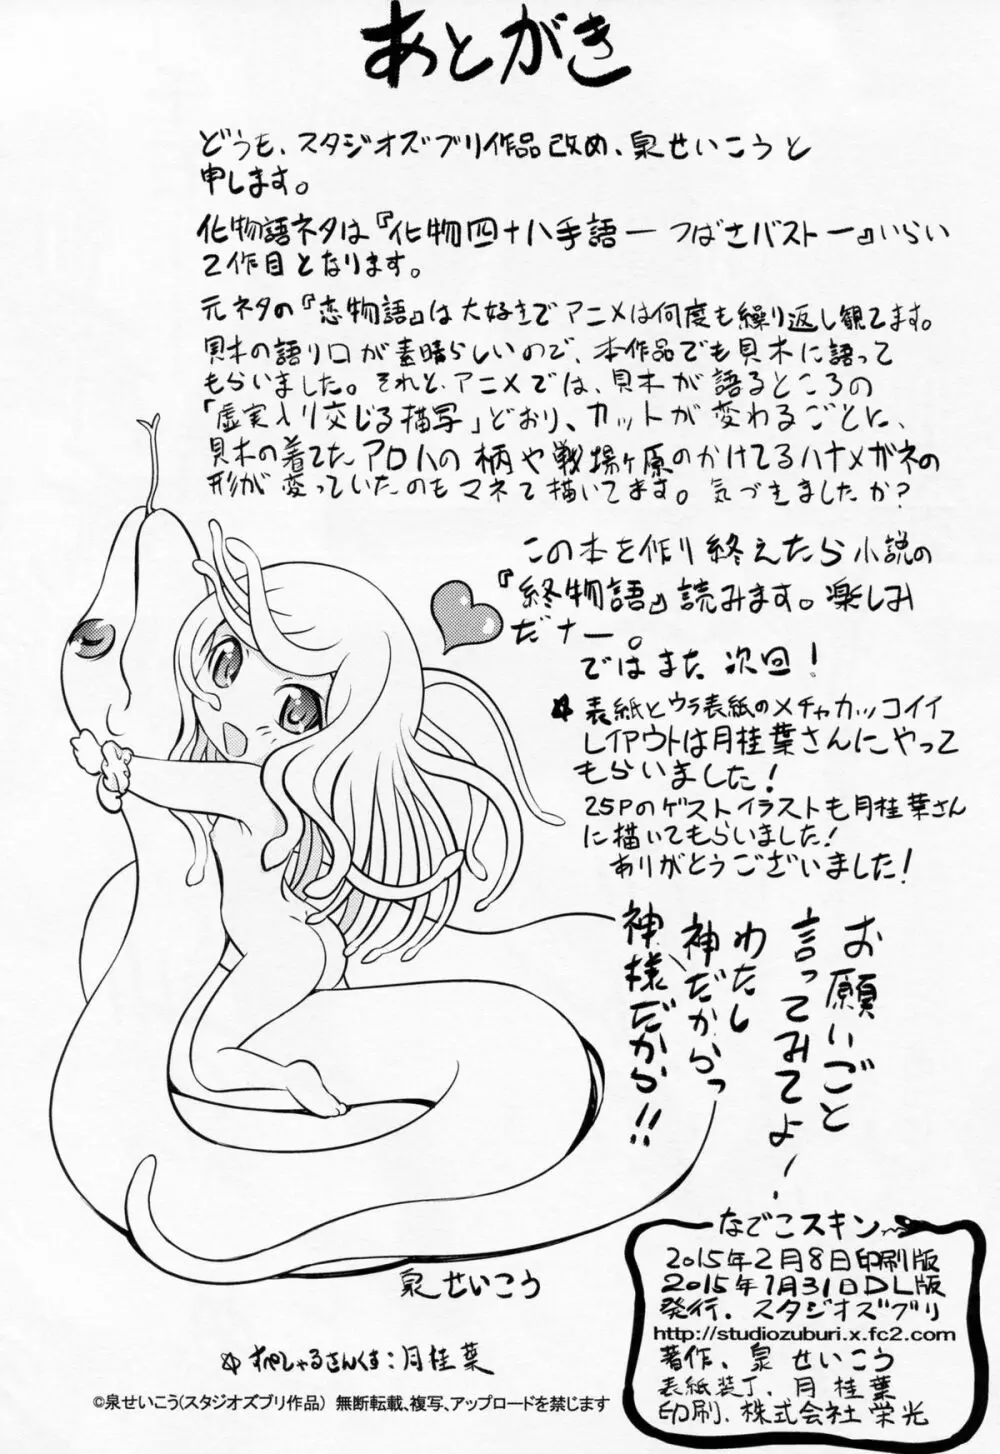 あとがき
どうも、スタジオズブリ作品改め、泉せいこうと
申します。
化物語ネタは『化物四十八手語ーつばさバストー』いらい
2作目となります。
元ネタの『恋物語』は大好きでアニメは何度も繰り返し観てます。
貝木の語り口が素晴らしいので、本作品でも貝木に語って
もらいました。それと、アニメでは、貝木が語るところの
「虚実入り交じる描写」どおり、カットが変わるごとに、
貝木の着てたアロハの柄や戦場ヶ原のかけてるハナメガネの
形が変っていたのもマネて描いてます。気づきましたか?
この本を作り終えたら小説の
『終物語』読みます。楽しみ
だナー。
ではまた次回!
☆表紙とウラ表紙のメチャカッコイイ
レイアウトは月桂葉さんにやって
もらいました!
25Pのゲストイラストも月桂葉さん
に描いてもらいました!
ありがとうございました!
お願いごと
言ってみてよ!
わたし
神だからっ
神様だから!!
泉せいこう
☆すぺしゃるさんくす:月桂葉
©泉せいこう(スタジオズブリ作品) 無断転載、複写、アップロードを禁じます
なでこスキン
2015年2月8日印刷版
2015年1月31日DL版
発行、スタジオズブリ
http://studiozuburi.x.fc2.com
著作、泉せいこう
表紙装丁、月桂葉
印刷、株式会社栄光